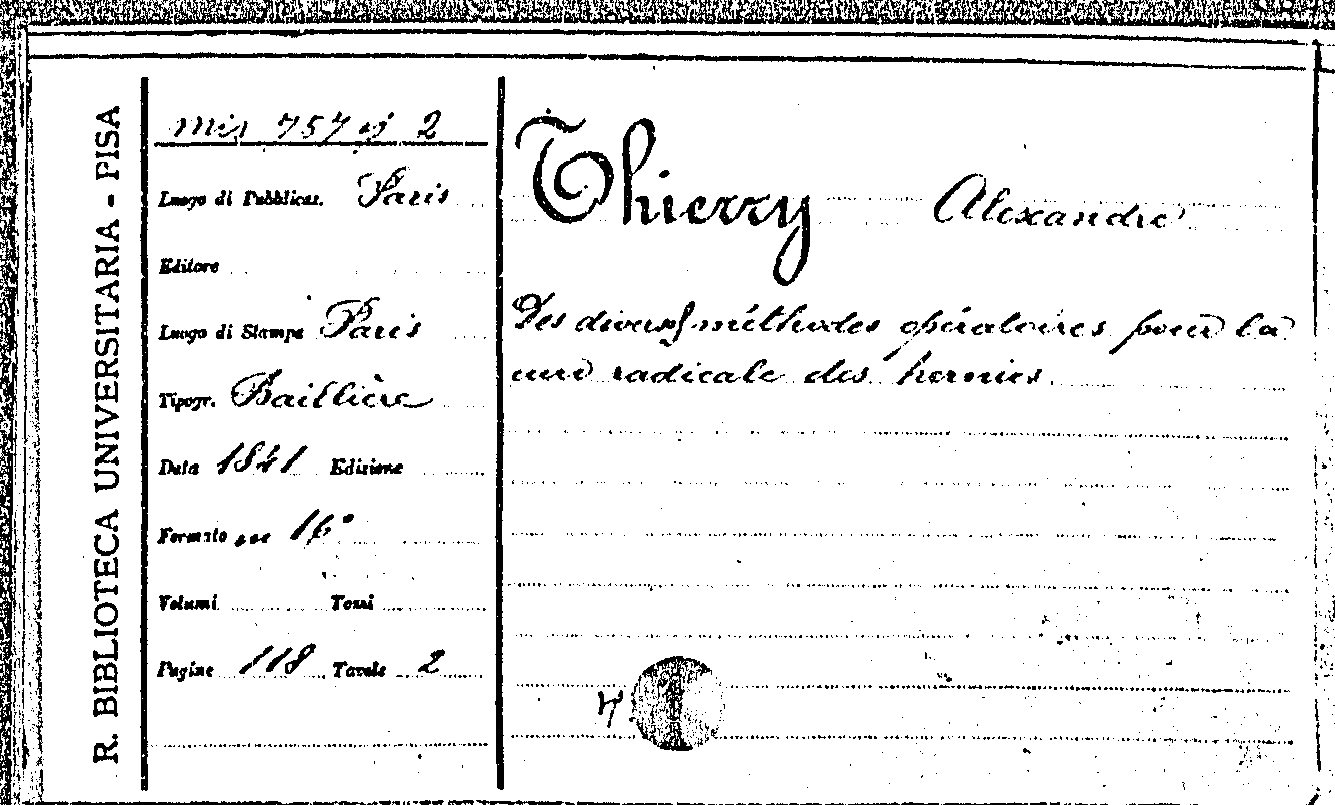 R. BIBLIOTECA UNIVERSITARIA - PISA
Mis 757 2
Luogo di Pubblicaz. Paris
Editore
Luogo di Stampa Paris
Tipogr. Baillière
Data 1841 Edizione
Formato 16°
Volumi Tomi
Pagine 118 Tavole 2
Thierry Alexandre
Des divers méthodes opératoires pour la
cure radicale des hernies.